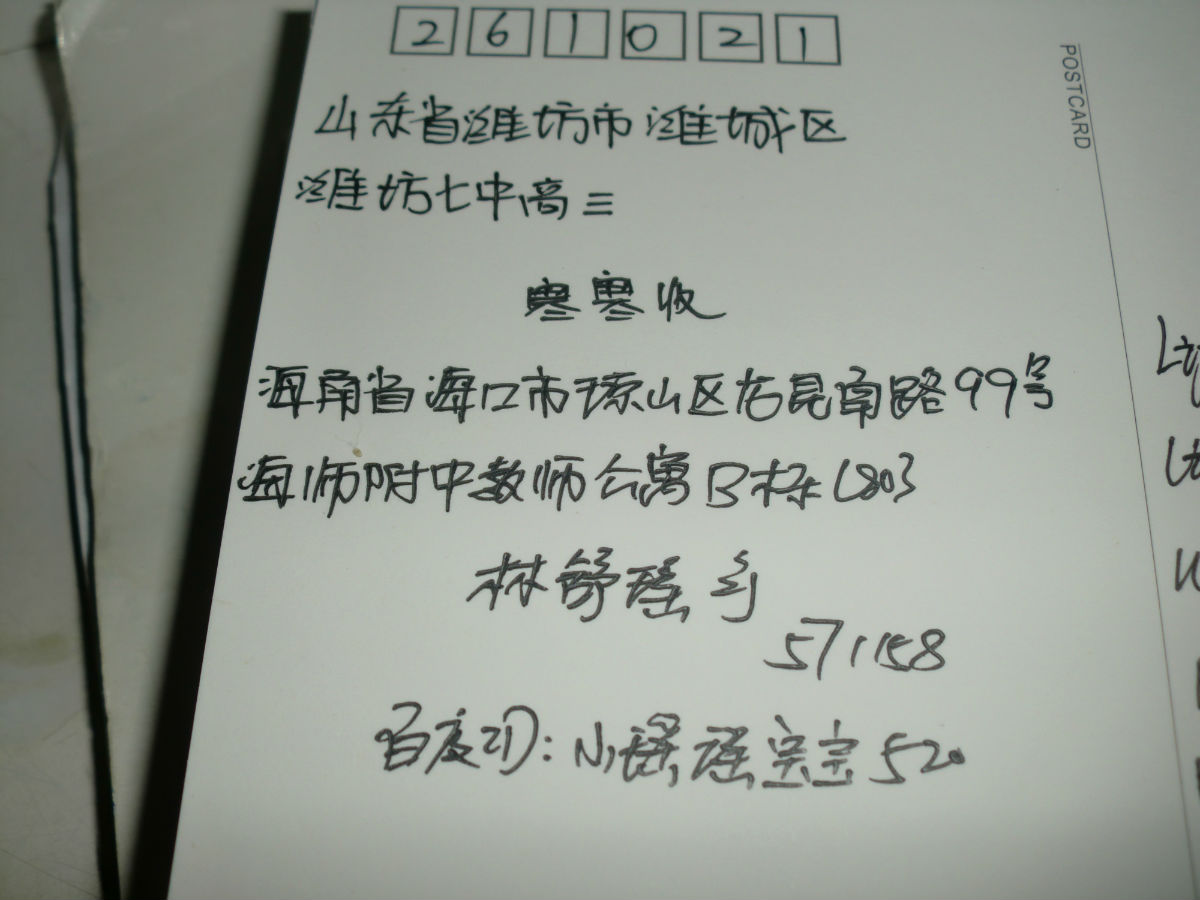 261021
POSTCARD
山东省潍坊市潍城区
潍坊七中高三
寒寒收
海南省海口市琼山区右昆南路99号
海师附中教师公寓B栋1803
林舒瑶寄
571158
百度ID:小瑶瑶宝宝520